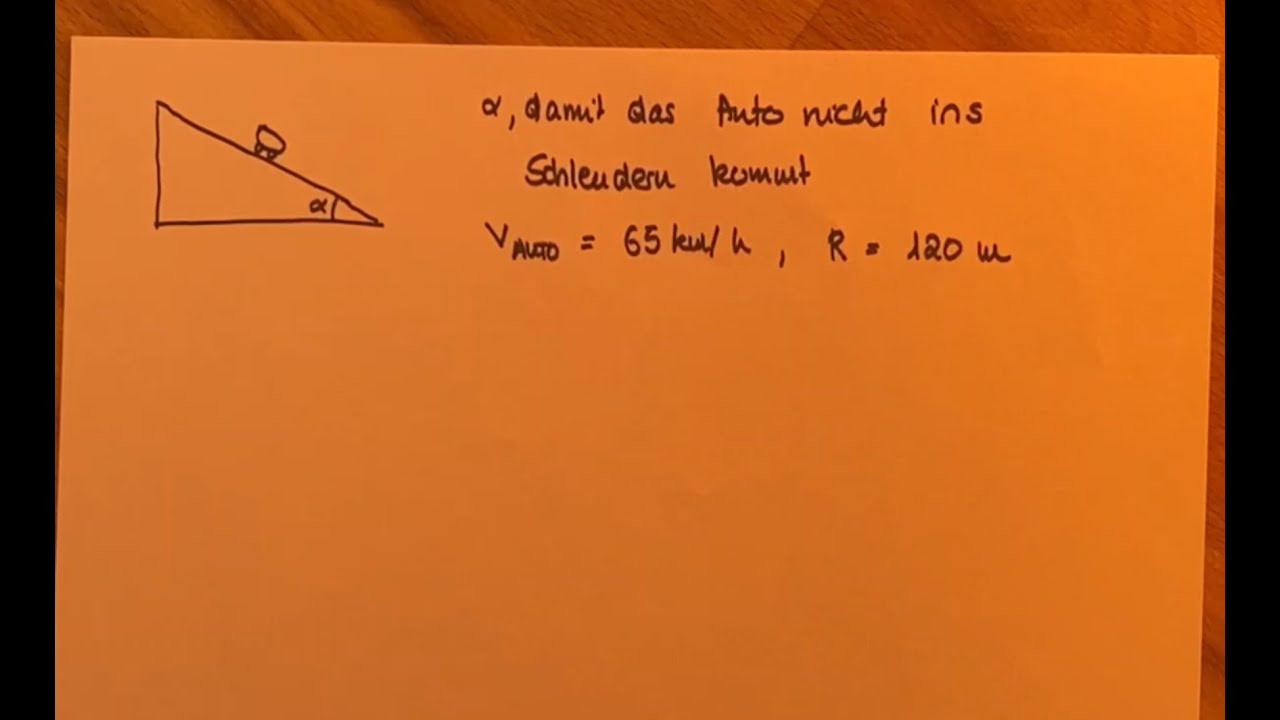 α, damit das Auto nicht ins
Schleudern kommt
V_AUTO = 65 km/h , R = 120 m
α